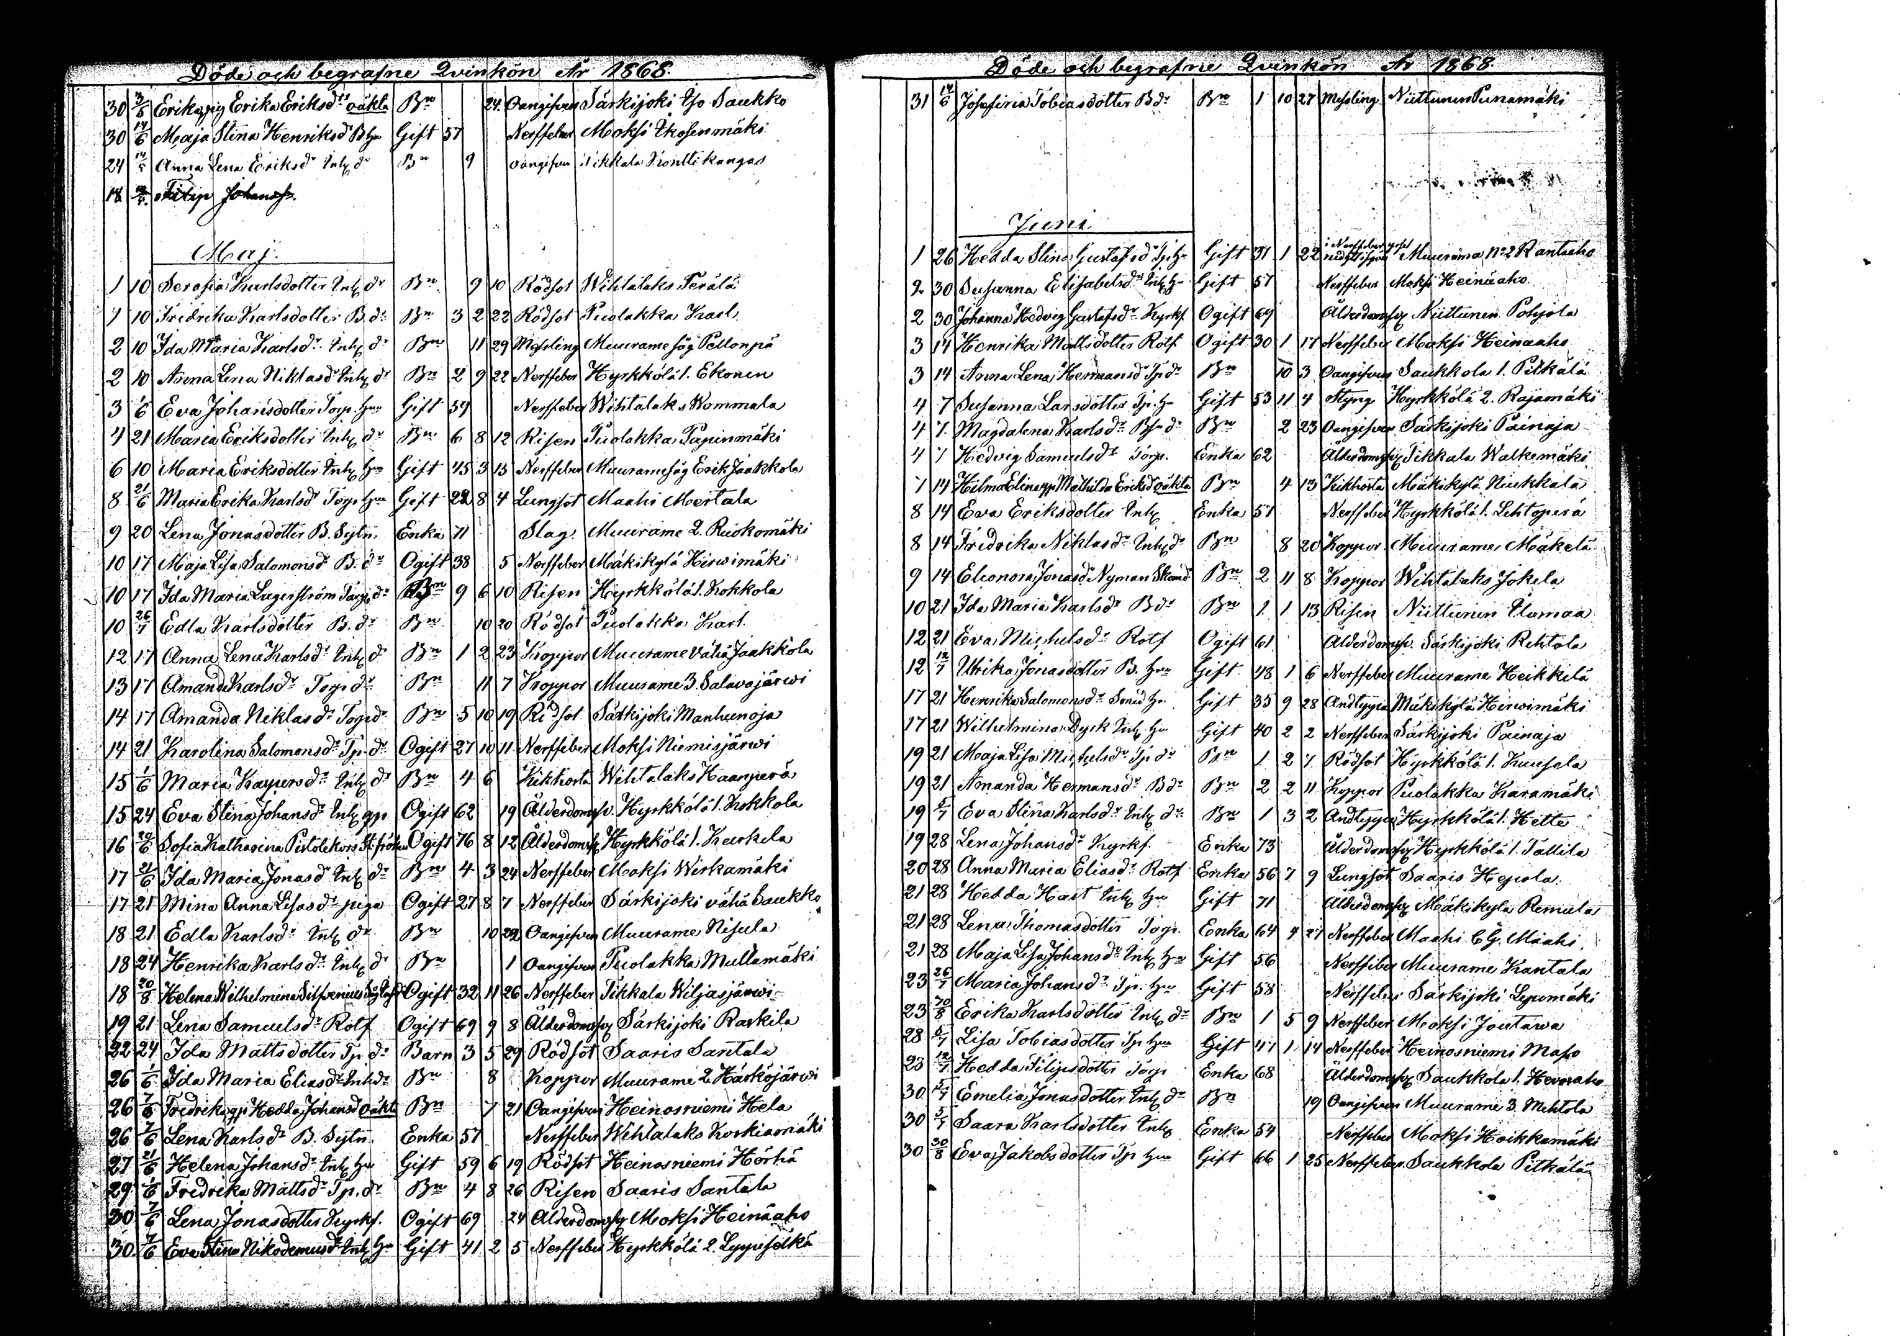 Döde och begrafne Qvinkön År 1868.
30 3/6 Erika pig Erika Eriksdr oäkta Bn 24 Oangifven Särkijoki Iso Saukko
30 14/6 Maja Stina Henriksdr B hu Gift 57 Nerffeber Moksi
24 14/5 Anna Lena Eriksdr Inh dr Bn 9 Oangifven Tikkala Konttikangas
18 Filip Johanss.
Maj.
1 10 Serafia Karlsdotter Inh dr Bn 9 10 Rödsot Wihtalaks Perälä
1 10 Fredrika Karlsdotter B. dr Bn 3 2 22 Rödsot Puolakka Karl
2 10 Ida Maria Karlsdr Inh dr Bn 11 29 Messling Muurame såg Pellonpä
2 10 Anna Lena Niklasdr Inh dr Bn 2 9 22 Nerffeber Hyrkkölä 1. Ekonen
3 1/6 Eva Johansdotter Torp. hu Gift 59 Nerffeber Wihtalaks Kommala
4 21 Maria Eriksdotter Inh dr Bn 6 8 12 Risen Puolakka Papinmäki
6 10 Maria Eriksdotter Inh hu Gift 45 3 15 Nerffeber Muurame såg Erik Jaakkola
8 21/6 Maria Erika Karlsdr Torp hu Gift 22 8 4 Lungsot Maahi Mertala
9 20 Lena Jonasdotter B. Sytn. Enka 71 Slag. Muurame 2. Ruokomäki
10 17 Maja Lisa Salomonsdr B. dr Ogift 38 5 Nerffeber Mäkikylä Hirwimäki
10 17 Ida Maria Lagerström Torp dr Bn 9 6 10 Risen Hyrkkölä 1. Kokkola
10 26/7 Edla Karlsdotter B. dr Bn 10 20 Rödsot Puolakka Karl.
12 17 Anna Lena Karlsdr Inh dr Bn 1 2 23 Koppor Muurame vähä Jaakkola
13 17 Amanda Karlsdr Torp dr Bn 11 7 Koppor Muurame 3. Salavajärwi
14 17 Amanda Niklasdr Torp dr Bn 5 10 19 Rödsot Särkijoki Manhunoja
14 21 Karolina Salomonsdr Tp. dr Ogift 27 10 11 Nerffeber Moksi Niemisjärwi
15 1/6 Maria Kaspersdr Inh dr Bn 4 6 Kikhosta Wihtalaks Haaperä
15 24 Eva Stina Johansdr Inh pp Ogift 62 19 Ålderdomsv. Hyrkkölä 1. Kokkola
16 20/6 Sofia Katharina Pistolekors Ogift 76 8 12 Ålderdomsv Hyrkkölä 1. Kurkela
17 21/6 Ida Maria Jonasdr Inh dr Bn 4 3 24 Nerffeber Moksi Wirkamäki
17 21 Mina Anna Lisasdr piga Ogift 27 8 7 Nerffeber Särkijoki vähä Saukko
18 21 Edla Karlsdr Inh dr Bn 10 22 Oangifven Muurame Nisula
18 24 Henrika Karlsdr Inh dr Bn 1 Oangifven Puolakka Multamäki
18 20/8 Helena Wilhelmina Silfvenius Ogift 32 11 26 Nerffeber Tikkala Wiljasjärwi
19 21 Lena Samuelsdr Rotf Ogift 69 9 8 Ålderdomsv Särkijoki Raskila
22 24 Ida Mattsdotter Tp dr Barn 3 5 29 Rödsot Saaris Santala
26 1/6 Ida Maria Eliasdr Inh dr Bn 8 Koppor Muurame 2 Härköjärwi
26 7/6 Fredrik pp Hedda Johansd oäkta Bn 7 21 Oangifven Heinosniemi Hela
26 7/6 Lena Karlsdr B. Sytn. Enka 57 Nerffeber Wihtalaks Korkiamäki
27 21/6 Helena Johansdr Inh hu Gift 59 6 19 Rödsot Heinosniemi Hörhä
29 1/6 Fredrika Mattsdr Tp. dr Bn 4 8 26 Risen Saaris Santala
30 7/6 Lena Jonasdotter Kyrkf. Ogift 69 24 Ålderdomsv Moksi Heinäaho
30 7/6 Eva Stina Nikodemusdr Inh hu Gift 41 2 5 Nerffeber Hyrkkölä 2. Lyypeselkä
Döde och begrafne Qvinkön År 1868.
31 14/6 Josefina Tobiasdotter B dr Bn 1 10 27 Messling Niittunen Punamäki
Juni
1 26 Hedda Stina Gustafsdr Tp hu Gift 31 1 22 i Nerffeber Muurame No 2 Rantaaho
2 30 Susanna Elisabetsdr Inh hu Gift 57 Nerffeber Moksi Heinäaho
2 30 Johanna Hedvig Gustafsdr Kyrkf Ogift 69 Ålderdomsv Niittunen Pohjola
3 14 Henrika Mattsdotter Rotf Ogift 30 1 17 Nerffeber Moksi Heinäaho
3 14 Anna Lena Hermansdr Tp dr Bn 10 3 Oangifven Saukkola 1. Pitkälä
4 7 Susanna Larsdotter Tp. h Gift 53 11 4 Styng Hyrkkölä 2. Rajamäki
4 7 Magdalena Karlsdr dr Bn 2 23 Oangifven Särkijoki Painaja
4 7 Hedvig Samuelsdr Torp. Enka 62 Ålderdomsv Tikkala Walkemäki
7 14 Hilma Elina pp Mathilda Eriksd oäkta Bn 4 13 Kikhosta Mäkikylä Nukkala
8 14 Eva Eriksdotter Inh Enka 57 Nerffeber Hyrkkölä 1. Lehtoperä
8 14 Fredrika Niklasdr Inh dr Bn 8 20 Koppor Muurame Mäkelä
9 14 Eleonora Jonasdr Nyman Bn 2 11 8 Koppor Wihtalaks Jokela
10 21 Ida Maria Karlsdr B dr Bn 1 1 13 Risen Niittunen Ulamaa
12 21 Eva Michelsdr Rotf Ogift 61 Ålderdomsv. Särkijoki Rihtola
12 12/7 Ulrika Jonasdotter B. hu Gift 48 1 6 Nerffeber Muurame Heikkilä
17 21 Henrika Salomonsdr Smed h. Gift 35 9 28 Andtyppa Mäkikylä Hirwimäki
17 21 Wilhelmina Dyrk Inh hu Gift 40 2 2 Nerffeber Särkijoki Painaja
19 21 Maja Lisa Michelsdr Tp dr Bn 1 2 7 Rödsot Hyrkkölä 1. Kuusela
19 21 Amanda Hermansdr B dr Bn 2 2 11 Koppor Puolakka Karamäki
19 5/7 Eva Stina Karlsdr Inh dr Bn 1 3 2 Andtyppa Hyrkkölä 1. Hette
19 28 Lena Johansdr Kyrkf. Enka 73 Ålderdomsv Hyrkkölä 1. Tallila
20 28 Anna Maria Eliasdr Rotf Enka 56 7 9 Lungsot Saaris Hepola
21 28 Hedda Hast Inh hu Gift 71 Ålderdomsv Mäkikylä Remula
21 28 Lena Thomasdotter Torp. Enka 64 4 27 Nerffeber Maahi Maahi
21 28 Maja Lisa Johansdr Inh hu Gift 56 Nerffeber Muurame Kantala
23 26/7 Maria Johansdr Tp. hu Gift 58 Nerffeber Särkijoki Lepomäki
23 Erika Karlsdotter Inh dr Bn 1 5 9 Nerffeber Moksi Joutawa
28 5/7 Lisa Tobiasdotter Tp hu Gift 47 1 14 Nerffeber Heinosniemi Maso
23 12/7 Hedda Filipsdotter Torp Enka 68 Ålderdomsv Saukkola 1. Hevosaho
30 12/7 Emelia Jonasdotter Inh dr Bn 19 Oangifven Muurame 3. Mehtola
30 5/7 Saara Karlsdotter Inh Enka 54 Nerffeber Moksi Hoikkamäki
30 30/8 Eva Jakobsdotter Tp hu Gift 66 1 25 Nerffeber Saukkola Pitkälä